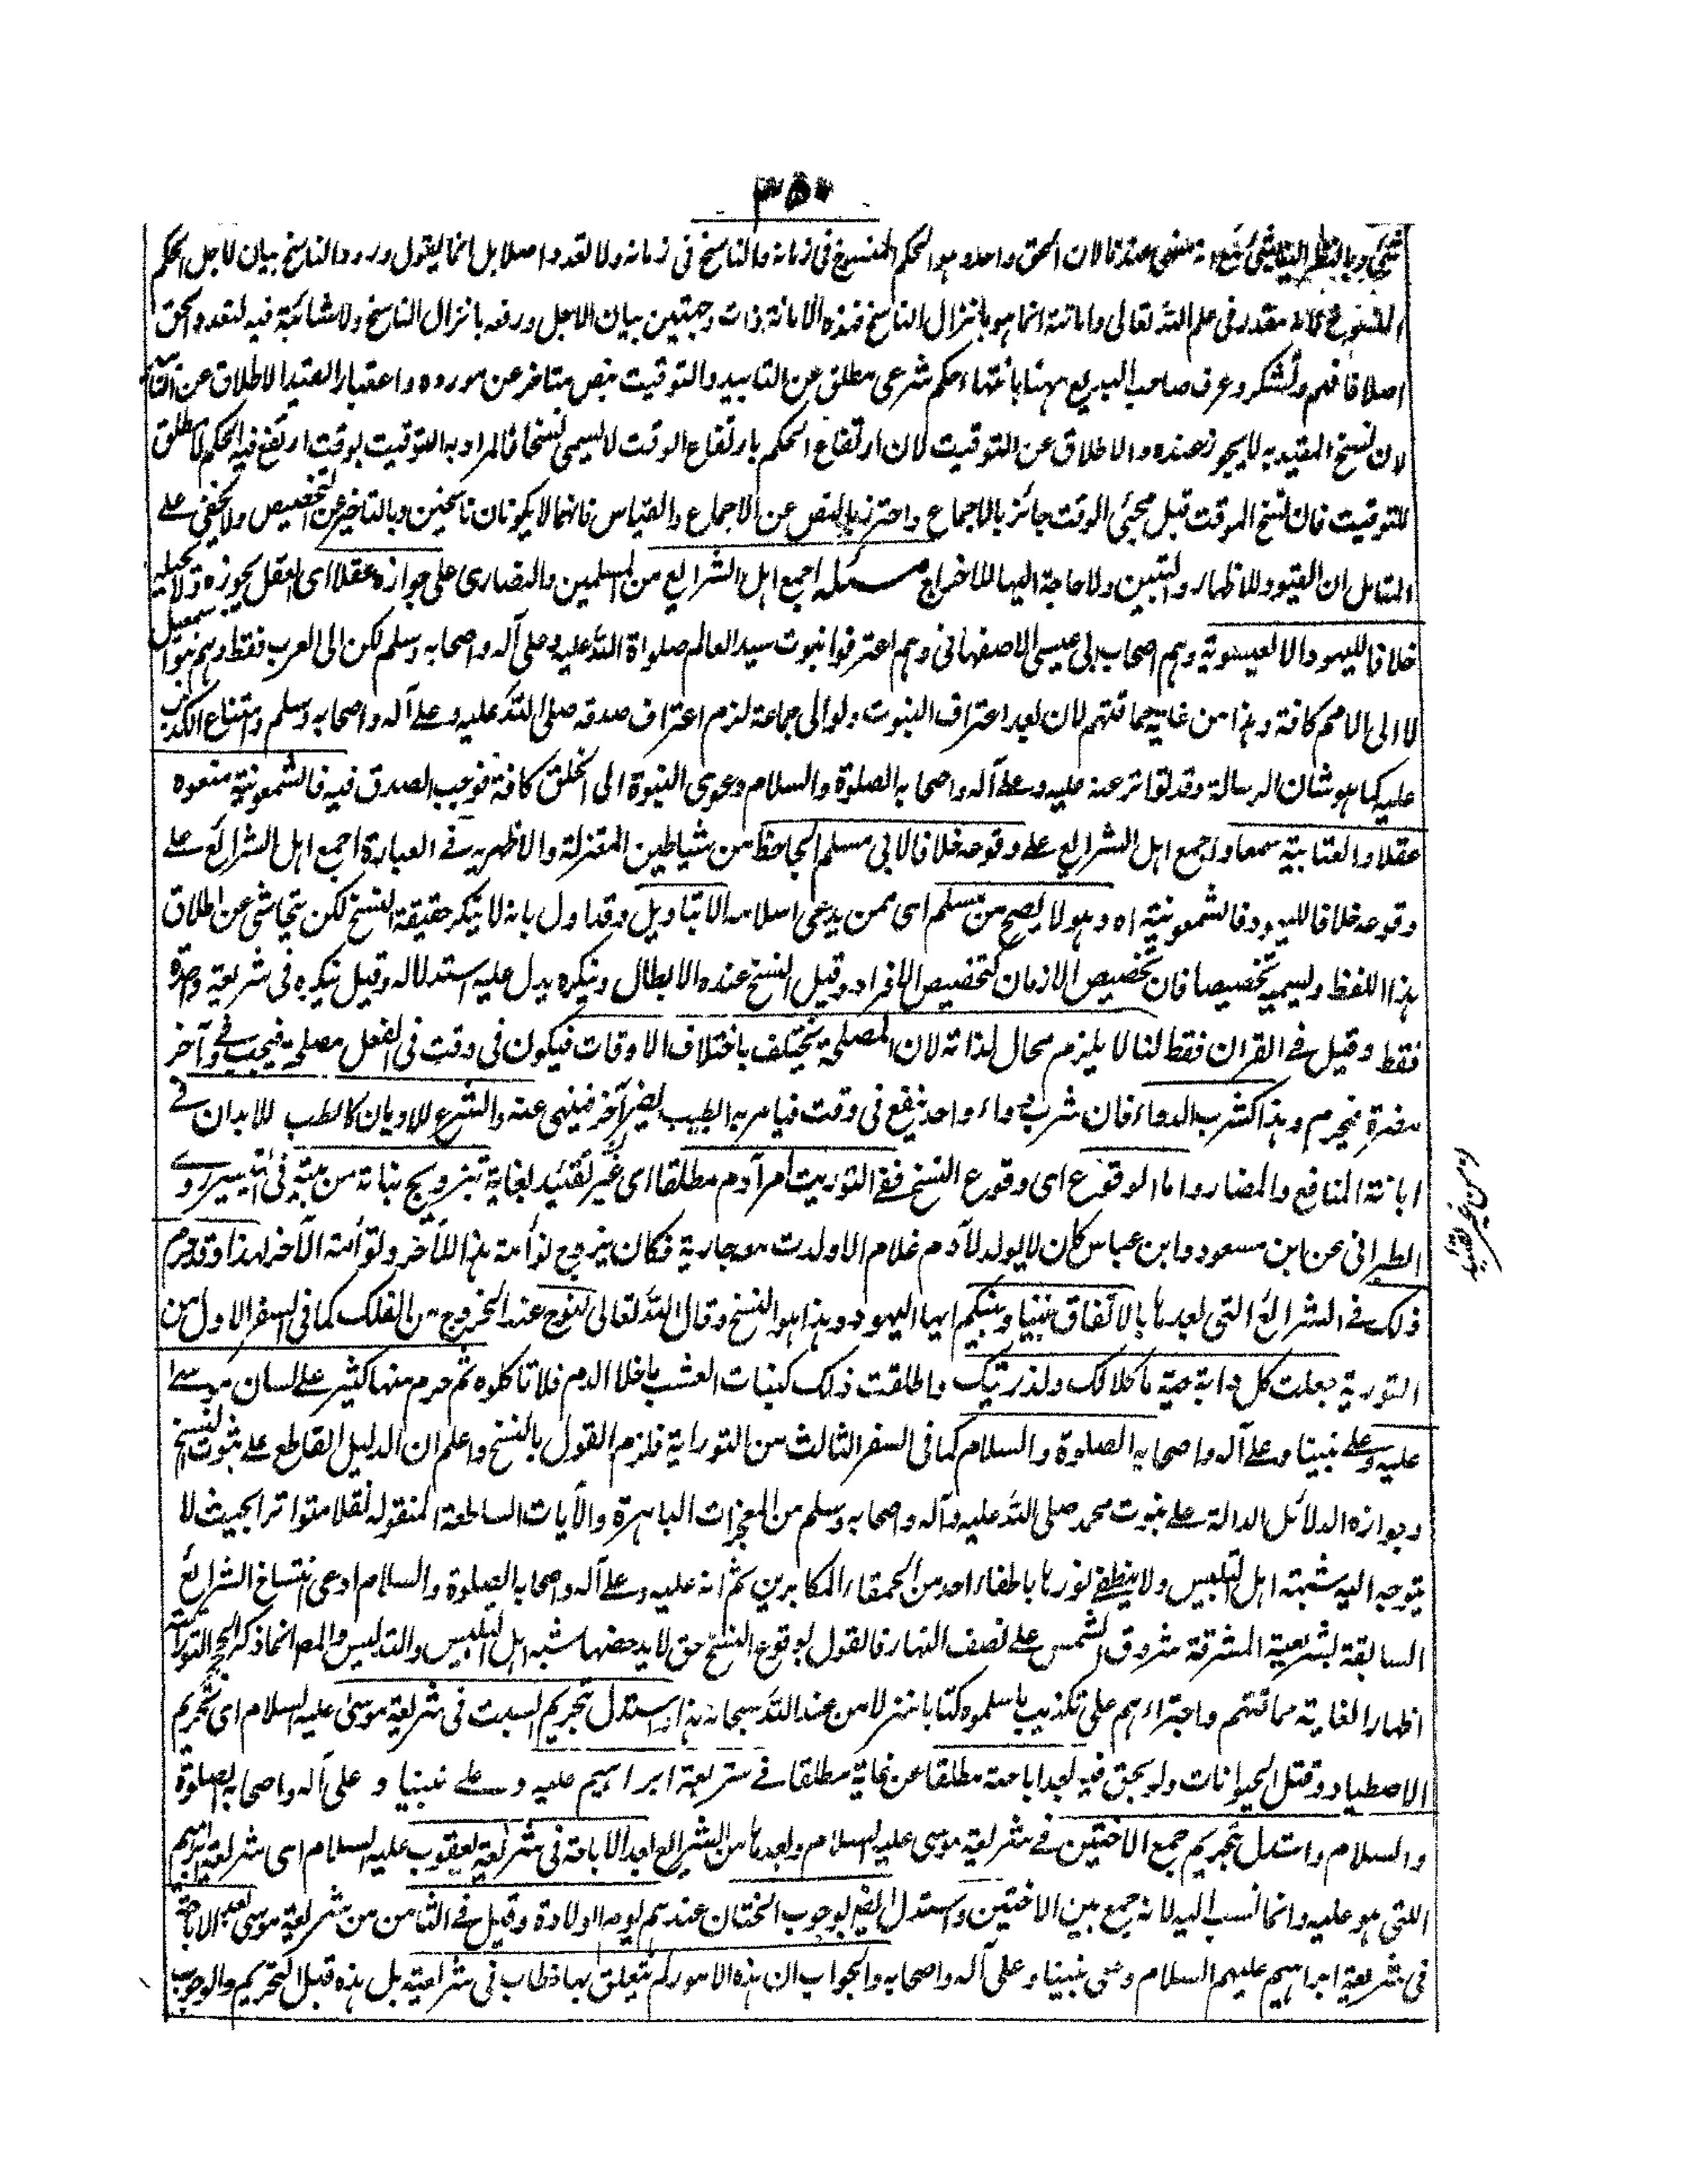 ٣٥٠
شئ وبالنظر الينا شئ رفع انه عندنا لان الحق واحد وهو الحكم المنسوخ فى زمانه والناسخ فى زمانه ولا تعدد اصلا بل انما يقول ورود الناسخ بيان لاجل الحكم
المنسوخ مقدر فى علم الله تعالى واماتته انما هو بانزال الناسخ فهذه الاماتة ذات وجهتين بيان الاجل ورفعه بانزال الناسخ ولا شائبة فيه لتعدد الحق
اصلا فافهم وتشكر وعرف صاحب البديع ههنا بانتهاء حكم شرعى مطلق عن التابيد والتوقيت بنص متاخر عن مورده واعتبار القيد الاطلاق عن التابيد
لان نسخ المقيد به لا يجوز عنده والاطلاق عن التوقيت لان ارتفاع الحكم بارتفاع الوقت لا يسمى نسخا فالمراد به التوقيت بوقت ارتفع فيه الحكم لا مطلق
التوقيت فان نسخ الموقت قبل مجئ الوقت جائز بالاجماع واحترز بالنص عن الاجماع والقياس فانهما لا يكونان ناسخين وبالتاخير عن التخصيص ولا يخفى على
المتامل ان القيود للاظهار والتبيين ولا حاجة اليها للاخراج مسئله اجمع اهل الشرائع من المسلمين والنصارى على جوازه عقلا اى العقل يجوزه ولا يحيله
خلافا لليهود الا العيسوية وهم اصحاب ابى عيسى الاصفهانى وهم اعترفوا نبوت سيد العالم صلواة الله عليه وعلى آله واصحابه وسلم لكن الى العرب فقط وهم بنوا اسمعيل
لا الى الامم كافة وهذا من غاية حماقتهم لان بعد اعتراف النبوت ولو الى جماعة لزم اعتراف صدقه صلى الله عليه وعلى آله واصحابه وسلم وامتناع الكذب
عليه كما هو شان الرسالة وقد تواتر عنه عليه وعلى آله واصحابه الصلوة والسلام دعوى النبوة الى الخلق كافة فوجب الصدق فيه فالشمعونية منعوه
عقلا والعنانية سمعا واجمع اهل الشرائع على وقوعه خلافا لابى مسلم الجاحظ من شياطين المعتزلة والاظهر فى العبارة اجمع اهل الشرائع على
وقوعه خلافا لليهود فالشمعونية اه وهو لا يصح من مسلم اى ممن يدعى اسلامه الا بتاويل وقد اول بانه لا ينكر حقيقة النسخ لكن يتحاشى عن اطلاق
هذا اللفظ ويسميه تخصيصا فان تخصيص الازمان كتخصيص الافراد وقيل النسخ عنده الابطال وينكره يدل عليه استدلاله وقيل ينكره فى شريعة واحدة
فقط وقيل فى القران فقط لنا لا يلزم محال لذاته لان المصلحة تختلف باختلاف الاوقات فيكون فى وقت فى الفعل مصلحة فيجب وفى آخر
مضرة فيحرم وهذا كشرب الدواء فان شرب دواء واحد ينفع فى وقت فيامر به الطبيب ويضر آخر فينهى عنه والشرع للاديان كالطب للابدان فى
ابانة المنافع والمضار واما الوقوع اى وقوع النسخ ففى التوريت امر آدم مطلقا اى غير تقييد لغاية بتزويج بناته من بنيه فى التيسير روى
الطبرانى عن ابن مسعود وابن عباس كان لا يولد لآدم غلام الا ولدت معه جارية فكان يتزوج توأمة هذا للآخر وتوأمة الآخر لهذا وقد حرم
ذلك فى الشرائع التى بعدها بالاتفاق بيننا وبينكم ايها اليهود وهذا هو النسخ وقال الله تعالى لنوح عند الخروج من الفلك كما فى السفر الاول من
التورية جعلت كل دابة حية ماكلا لك ولذريتك واطلقت ذلك كنبات العشب ما خلا الدم فلا تاكلوه ثم حرم منها كثير على لسان موسى
عليه وعلى نبينا وعلى آله واصحابه الصلوة والسلام كما فى السفر الثالث من التوراية فلزم القول بالنسخ واعلم ان الدليل القاطع على ثبوت النسخ
وجوازه الدلائل الدالة على نبوت محمد صلى الله عليه وآله واصحابه وسلم من المعجزات الباهرة والآيات الساطعة المنقوله نقلا متواترا بحيث لا
يتوجه اليه شبهته اهل التلبيس ولا ينطفى نورها باطفاء احد من الحمقاء المكابرين ثم انه عليه وعلى آله واصحابه الصلوة والسلام ادعى انتساخ الشرائع
السابقة بشريعته المشرقة شروق الشمس على نصف النهار فالقول بوقوع النسخ حق لا يدحضها شبه اهل التلبيس والتدليس والمص انما ذكر الحجج التوراتية
اظهارا لغاية حماقتهم واجتراءهم على تكذيب ما سلموه كتابا منزلا من عند الله سبحانه هذا واستدل بتحريم السبت فى شريعة موسى عليه السلام اى تحريم
الاصطياد وقتل الحيوانات ولو بحق فيه بعد اباحته مطلقا عن غاية مطلقا فى شريعة ابراهيم عليه وعلى نبينا و على آله واصحابه الصلوة
والسلام واستدل بتحريم جمع الاختين فى شريعة موسى عليه السلام وبعدها من الشرائع بعد الاباحة فى شريعة يعقوب عليه السلام اى شريعة ابراهيم
التى هو عليه وانما نسب اليه لانه جمع بين الاختين واستدل ايضا لوجوب الختان عندهم يوم الولادة وقيل فى الثامن من شريعة موسى بعد الاباحة
فى شريعة ابراهيم عليهم السلام وعلى نبينا وعلى آله واصحابه والجواب ان هذه الامور لم تتعلق بها خطاب فى شريعة بل هذه قبل التحريم والوجوب
من غير تقييد